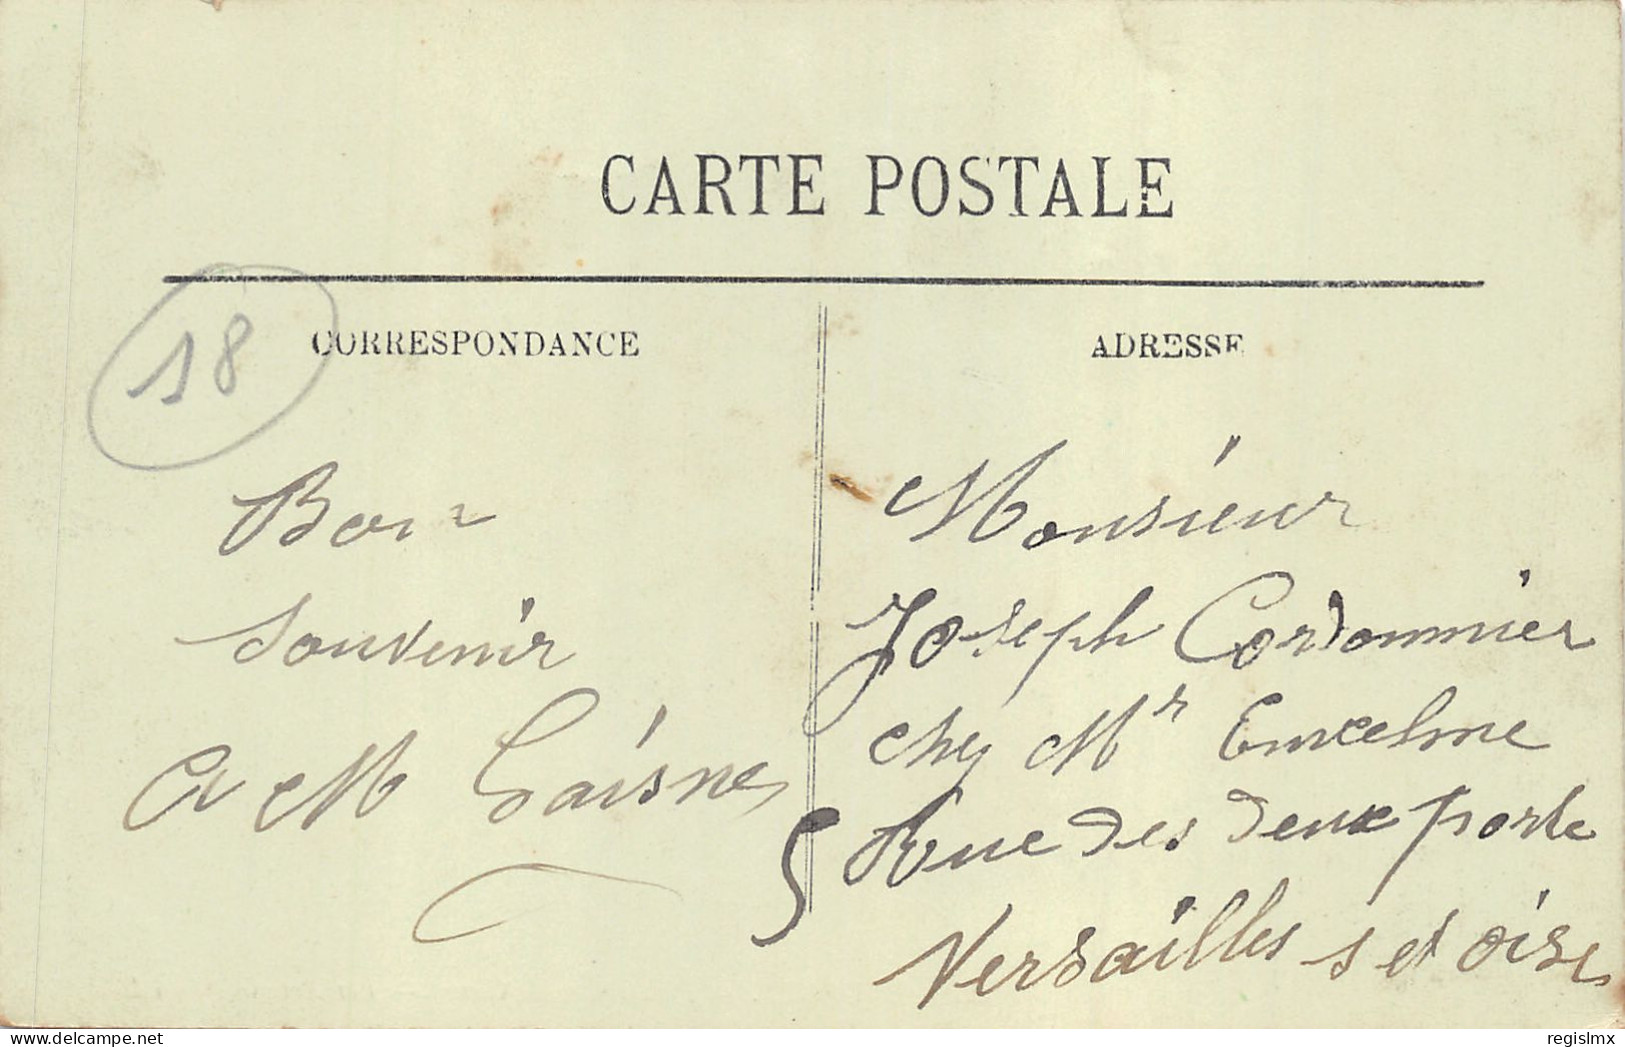 CARTE POSTALE
CORRESPONDANCE
18
Bon
souvenir
A M Laisne
ADRESSE
Monsieur
Joseph Cordonnier
chez Mr
5 Rue des deux porte
Versailles s et oise
regislmx